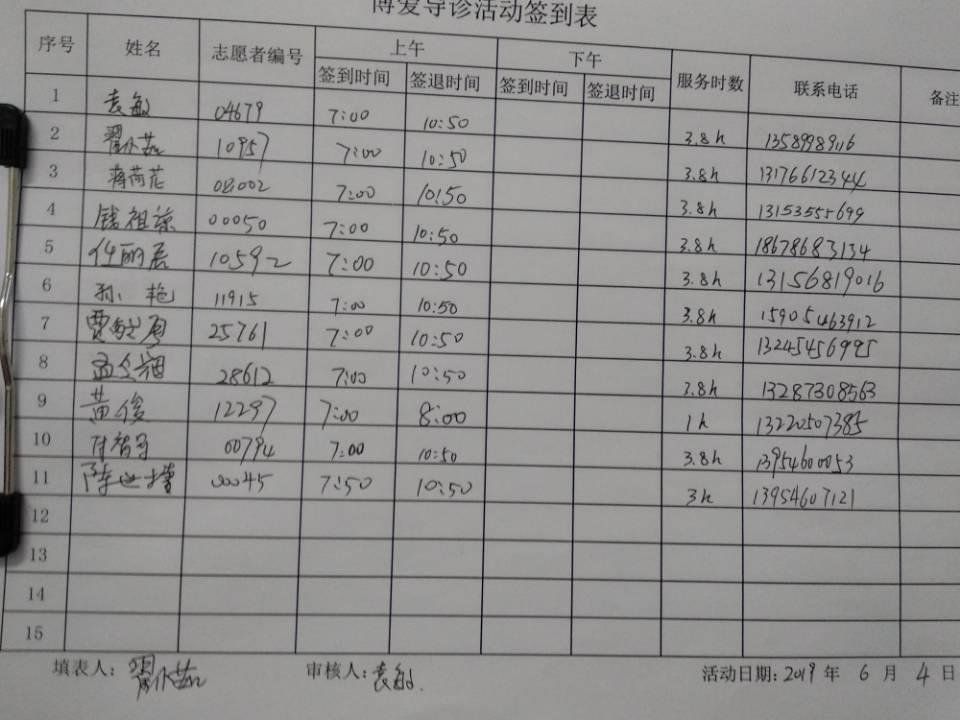 博爱导诊活动签到表
序号 姓名 志愿者编号 上午 下午 服务时数 联系电话 备注
签到时间 签退时间 签到时间 签退时间
1 袁敏 04679 7:00 10:50 3.8h 13589989116
2 翟仆茹 10957 7:00 10:50 3.8h 13176612344
3 蒋荷花 08002 7:00 10:50 3.8h 13153555699
4 钱祖谅 00050 7:00 10:50 3.8h 18678683134
5 任丽君 10592 7:00 10:50 3.8h 13156819016
6 孙艳 11915 7:00 10:50 3.8h 15905463912
7 25761 7:00 10:50 3.8h 13245456995
8 28612 7:00 10:50 3.8h 13287308563
9 黄俊 12297 7:00 8:00 1h 13220507385
10 00794 7:00 10:50 3.8h 13954600053
11 00045 7:50 10:50 3h 13954607121
12
13
14
15
填表人: 翟仆茹 审核人: 袁敏. 活动日期: 2019 年 6 月 4 日